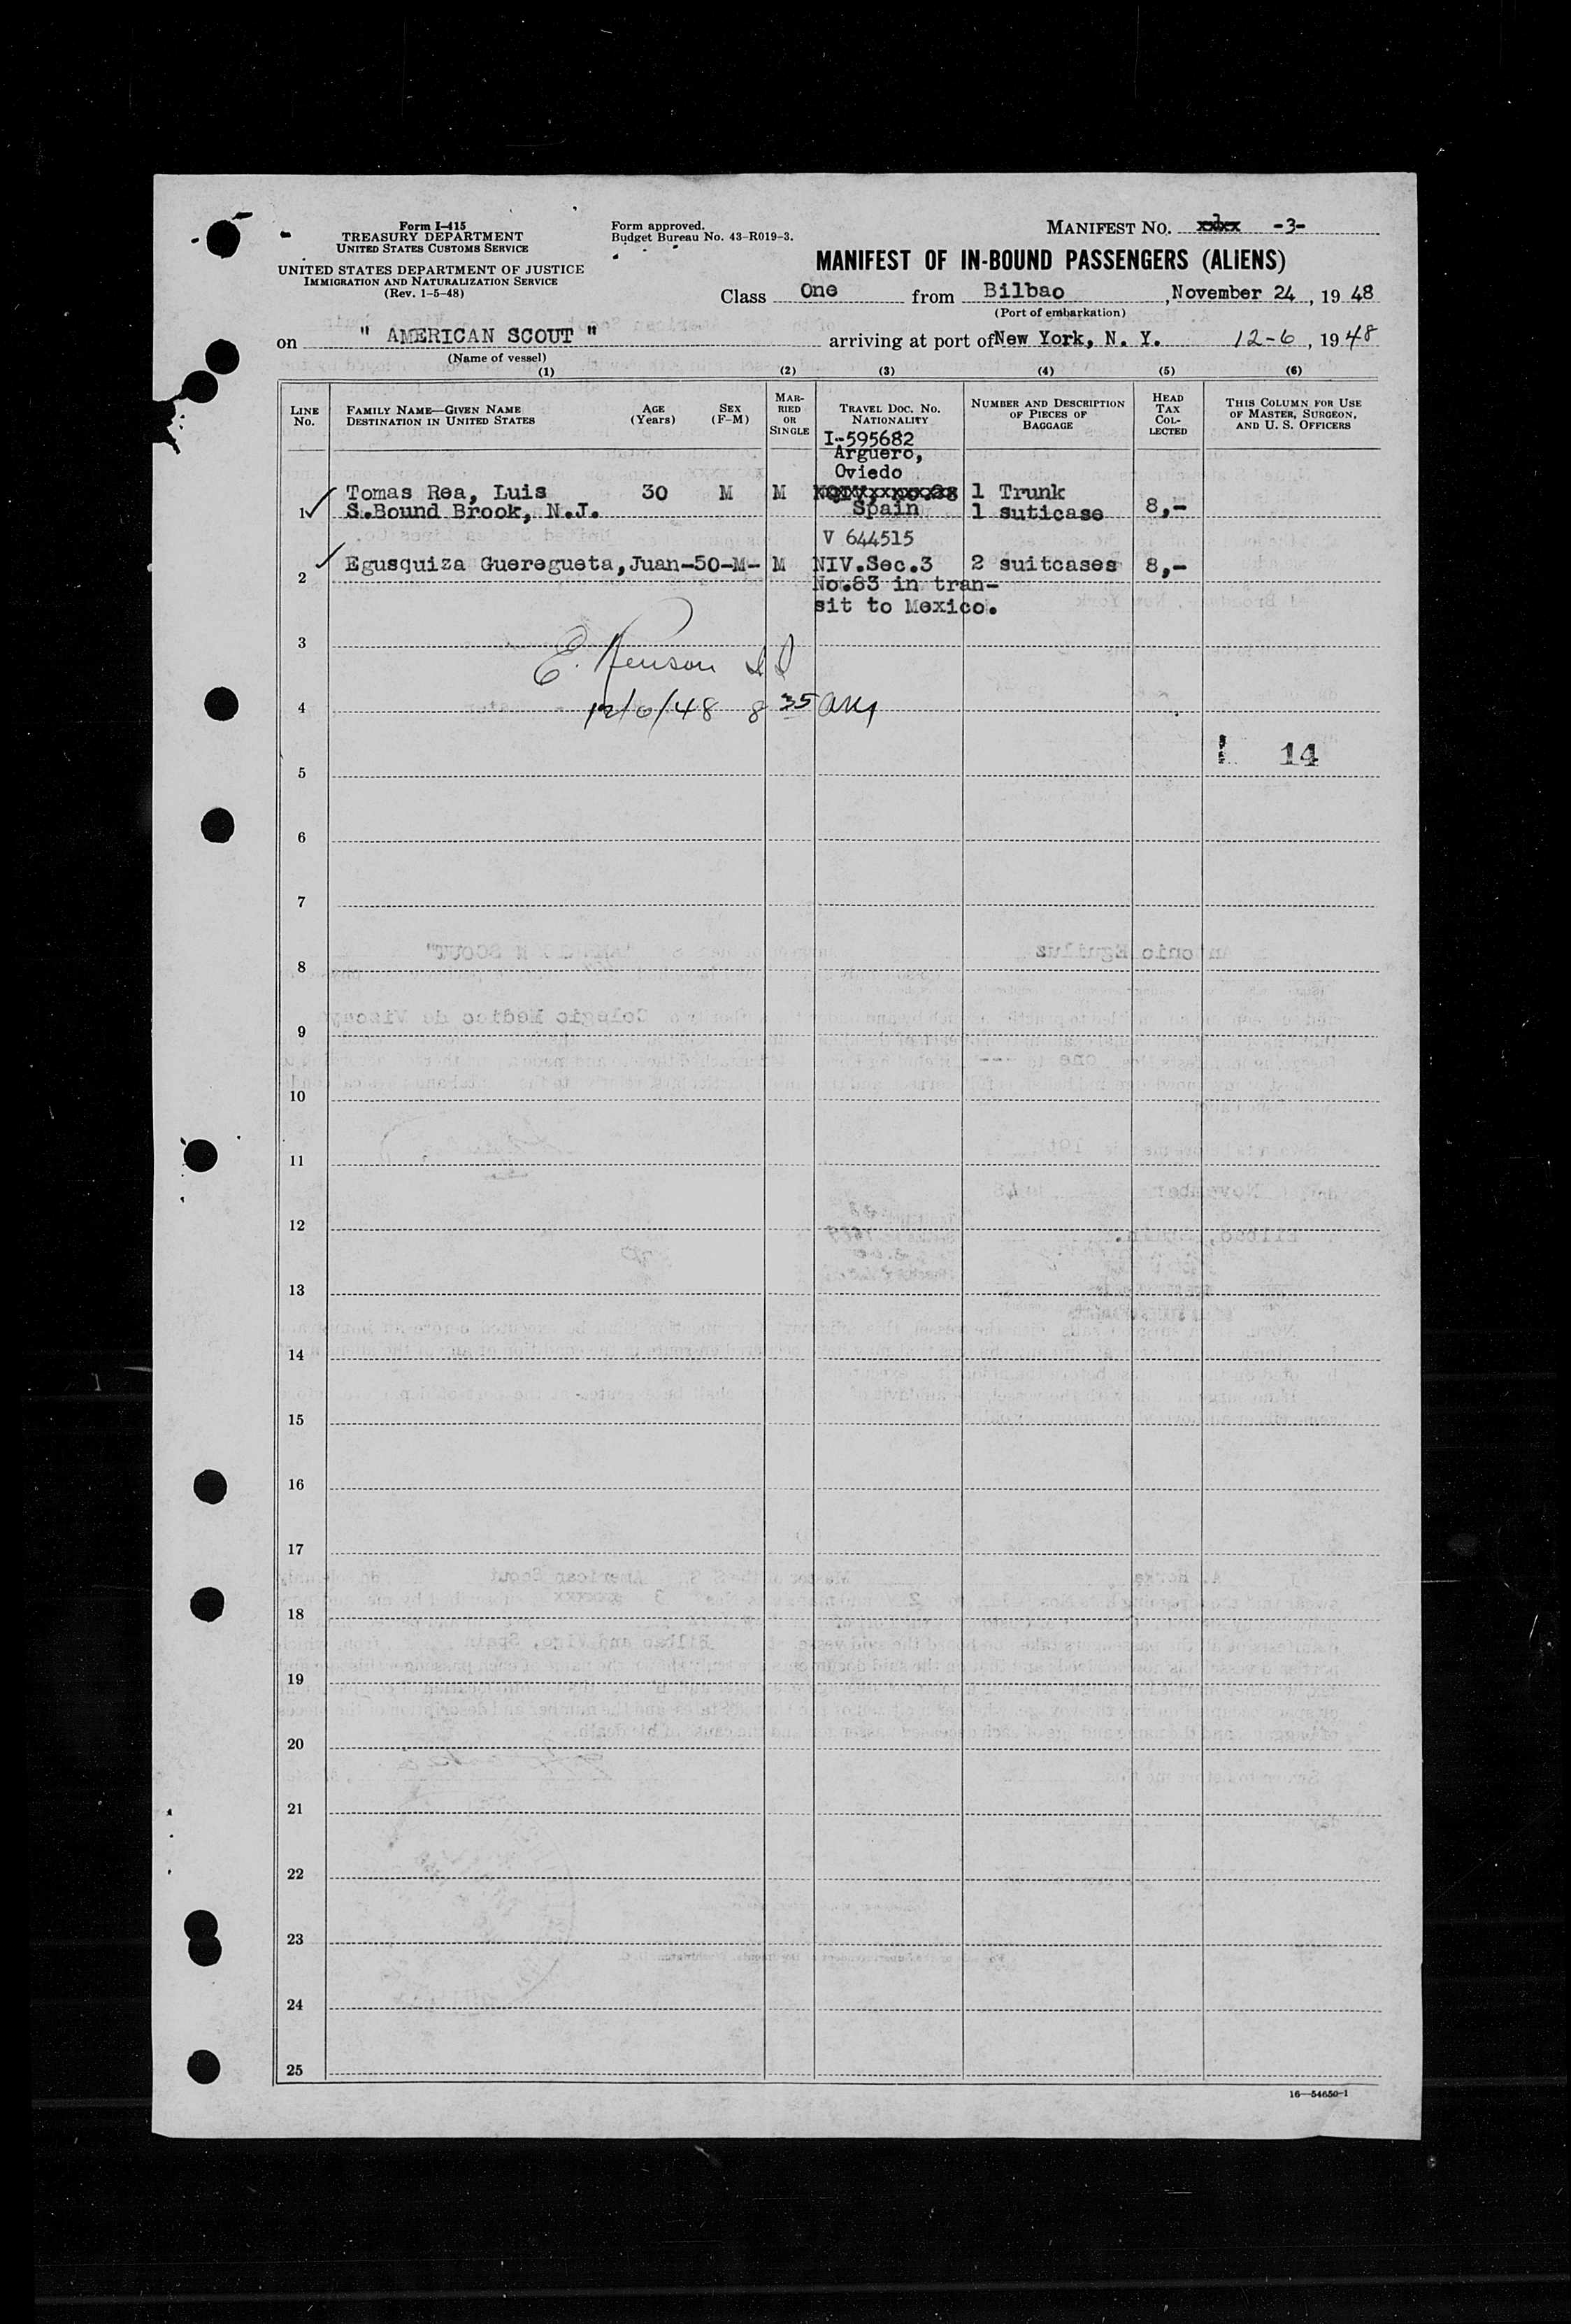 Form I-415
TREASURY DEPARTMENT
UNITED STATES CUSTOMS SERVICE
UNITED STATES DEPARTMENT OF JUSTICE
IMMIGRATION AND NATURALIZATION SERVICE
(Rev. 1-5-48)
Form approved.
Budget Bureau No. 43-R019-3.
MANIFEST NO. -3-
MANIFEST OF IN-BOUND PASSENGERS (ALIENS)
Class One from Bilbao, November 24, 1948
(Port of embarkation)
on " AMERICAN SCOUT " arriving at port of New York, N. Y. 12-6, 1948
(Name of vessel)
(1) (2) (3) (4) (5) (6)
LINE No.
FAMILY NAME—GIVEN NAME
DESTINATION IN UNITED STATES
AGE (Years)
SEX (F-M)
MARRIED OR SINGLE
TRAVEL DOC. NO.
NATIONALITY
NUMBER AND DESCRIPTION OF PIECES OF BAGGAGE
HEAD TAX COLLECTED
THIS COLUMN FOR USE OF MASTER, SURGEON, AND U. S. OFFICERS
I-595682
Arguero,
Oviedo
Tomas Rea, Luis 30 M M 1 Trunk
1 S.Bound Brook, N.J. Spain 1 suticase 8,-
V 644515
Egusquiza Gueregueta, Juan-50-M- M NIV.Sec.3 2 suitcases 8,-
2 No.83 in tran-
sit to Mexico.
3
E.
4 12/6/48 8 35 am
14
5
6
7
8
9
10
11
12
13
14
15
16
17
18
19
20
21
22
23
24
25
16—54650-1